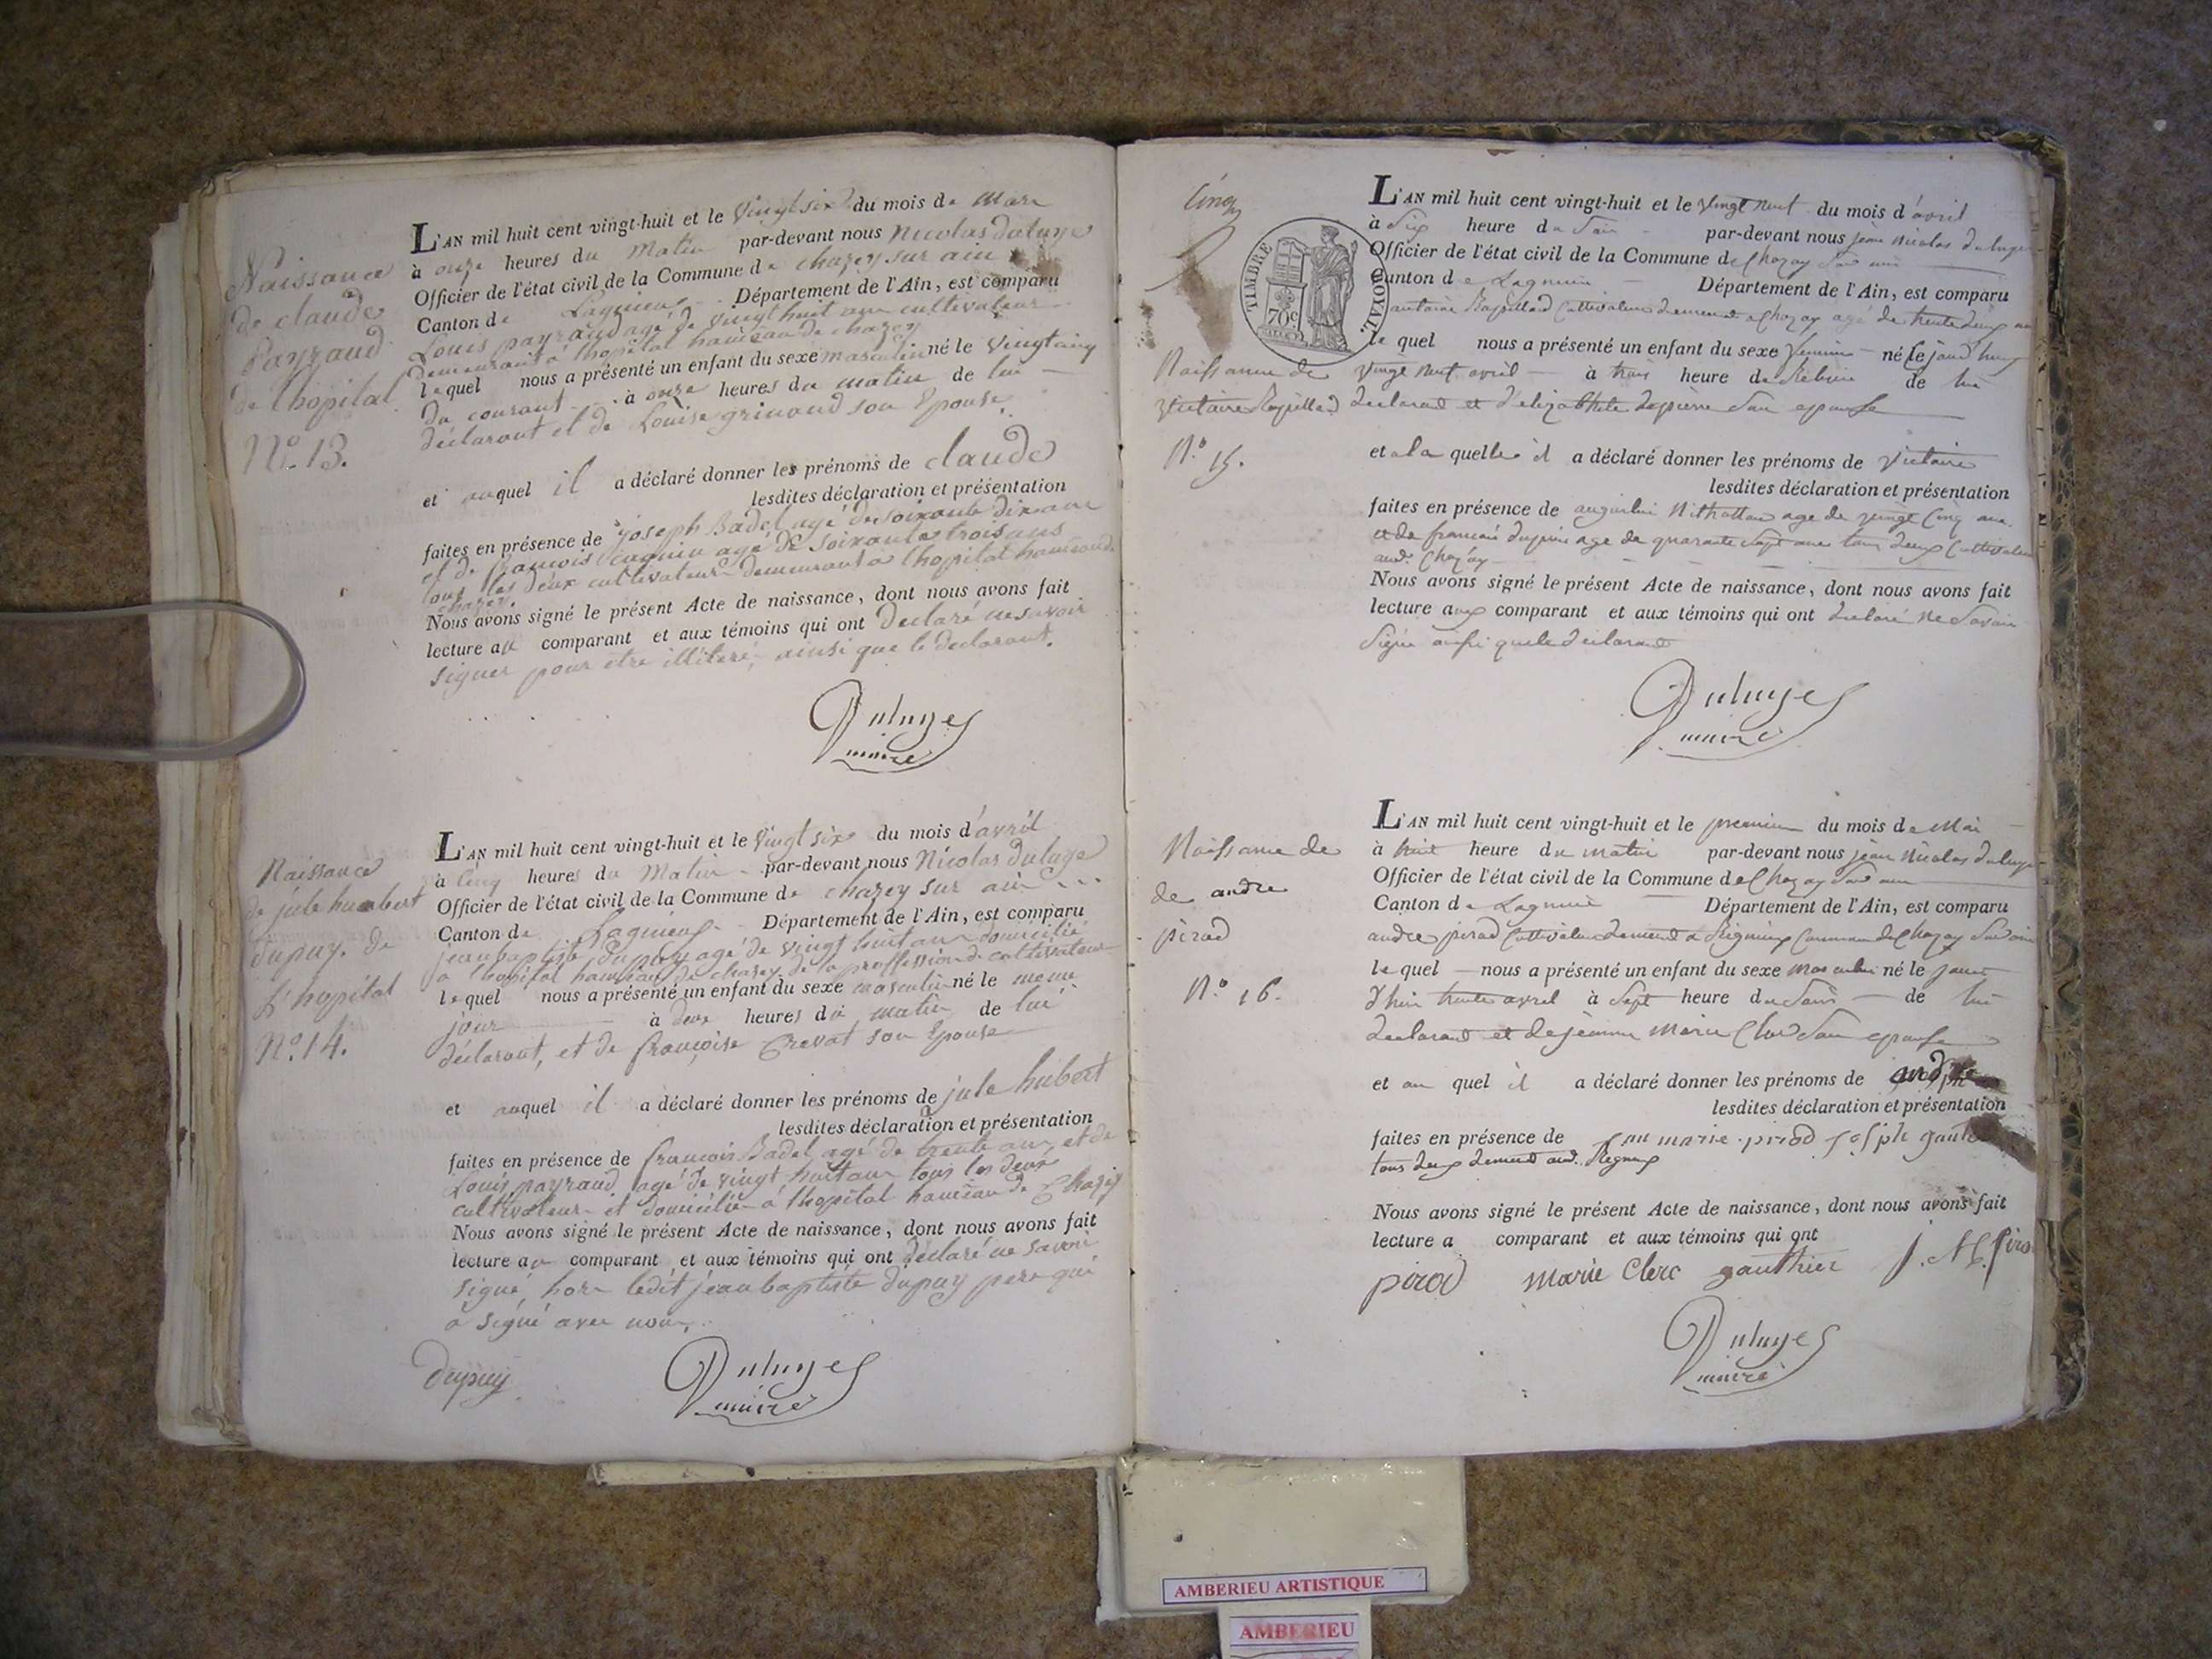 Naissance
de claude
Payraud
de l'hopital
N.o 13.
L'AN mil huit cent vingt-huit et le Vingt six du mois de Mars
à onze heures du Matin par-devant nous Nicolas Duluye
Officier de l'état civil de la Commune de chazey sur ain
Canton de Lagnieu Département de l'Ain, est comparu
Louis payraud agé de vingt huit ans cultivateur
demeurant à l'hopital hameau de chazey
lequel nous a présenté un enfant du sexe masculin né le Vingt cinq
du courant à onze heures du matin de lui
déclarant et de Louise grinand son Epouse
et auquel il a déclaré donner les prénoms de claude
lesdites déclaration et présentation
faites en présence de joseph Badel agé de soixante dix ans
et de francois agé de soixante trois ans
tous les deux cultivateurs demeurant a l'hopital hameau de
chazey.
Nous avons signé le présent Acte de naissance, dont nous avons fait
lecture au comparant et aux témoins qui ont Declaré ne savoir
signer pour etre illiteré, ainsi que le declarant.
Duluye
maire
Naissance
de jule humbert
dupuy. de
L'hopital
N.o 14.
L'AN mil huit cent vingt-huit et le Vingt six du mois d'avril
à Cinq heures du Matin par-devant nous Nicolas Duluye
Officier de l'état civil de la Commune de chazey sur ain
Canton de Lagnieu Département de l'Ain, est comparu
jean baptiste Dupuy agé de vingt huit ans domicilié
a l'hopital hameau de chazey de la proffession de cultivateur
lequel nous a présenté un enfant du sexe masculin né le meme
jour à deux heures du matin de lui
déclarant, et de françoise Crevat son Epouse
et auquel il a déclaré donner les prénoms de jule hubert
lesdites déclaration et présentation
faites en présence de francois Badel agé de trente ans, et de
Louis payraud agé de vingt huit ans tous les deux
cultivateurs et domiciliés à l'hopital hameau de Chazey
Nous avons signé le présent Acte de naissance, dont nous avons fait
lecture au comparant et aux témoins qui ont déclaré ne savoir
signé, hors ledit jean baptiste dupuy pere qui
à signé avec nous.
Dupuy
Duluye
maire
Cinq
TIMBRE ROYAL
70c
Naissance de
victoire Rapillard
N.o 15.
L'AN mil huit cent vingt-huit et le Vingt neuf du mois d'avril
à Six heure du Soir par-devant nous jean Nicolas Duluye
Officier de l'état civil de la Commune de Chazay Sur ain
Canton de Lagnieu Département de l'Ain, est comparu
antoine Rapillard Cultivateur demeurant a Chazay agé de trente deux ans
le quel nous a présenté un enfant du sexe feminin né Ce jourd'huy
vingt neuf avril à trois heure de de lui
declarand et d'elizabhete dupierre Son epouse
et a la quelle il a déclaré donner les prénoms de Victoire
lesdites déclaration et présentation
faites en présence de age de vingt Cinq ans
et de francois age de quarante Sept ans tous deux Cultivateurs
aud. Chazay
Nous avons signé le présent Acte de naissance, dont nous avons fait
lecture aux comparant et aux témoins qui ont declaré ne Savoir
Signé ainsi que le declarand
Duluye
maire
Naissance de
de andre
pirod
N.o 16.
L'AN mil huit cent vingt-huit et le premier du mois de Mai
à huit heure du matin par-devant nous jean Nicolas Duluye
Officier de l'état civil de la Commune de Chazay Sur ain
Canton de Lagnieu Département de l'Ain, est comparu
andre pirod Cultivateur demeurant a Rigneux Commune de Chazay Sur ain
le quel nous a présenté un enfant du sexe masculin né le jour
d'hier trente avril à Sept heure du Soir de lui
declarand et de jeanne Marie Clerc Son epouse
et au quel il a déclaré donner les prénoms de andre
lesdites déclaration et présentation
faites en présence de jean marie pirod joseph gautier
tous deux demeurant aud. Rigneux
Nous avons signé le présent Acte de naissance, dont nous avons fait
lecture a comparant et aux témoins qui ont
pirod Marie Clerc gauthier J. M. Piro
Duluye
maire
AMBERIEU ARTISTIQUE
AMBERIEU